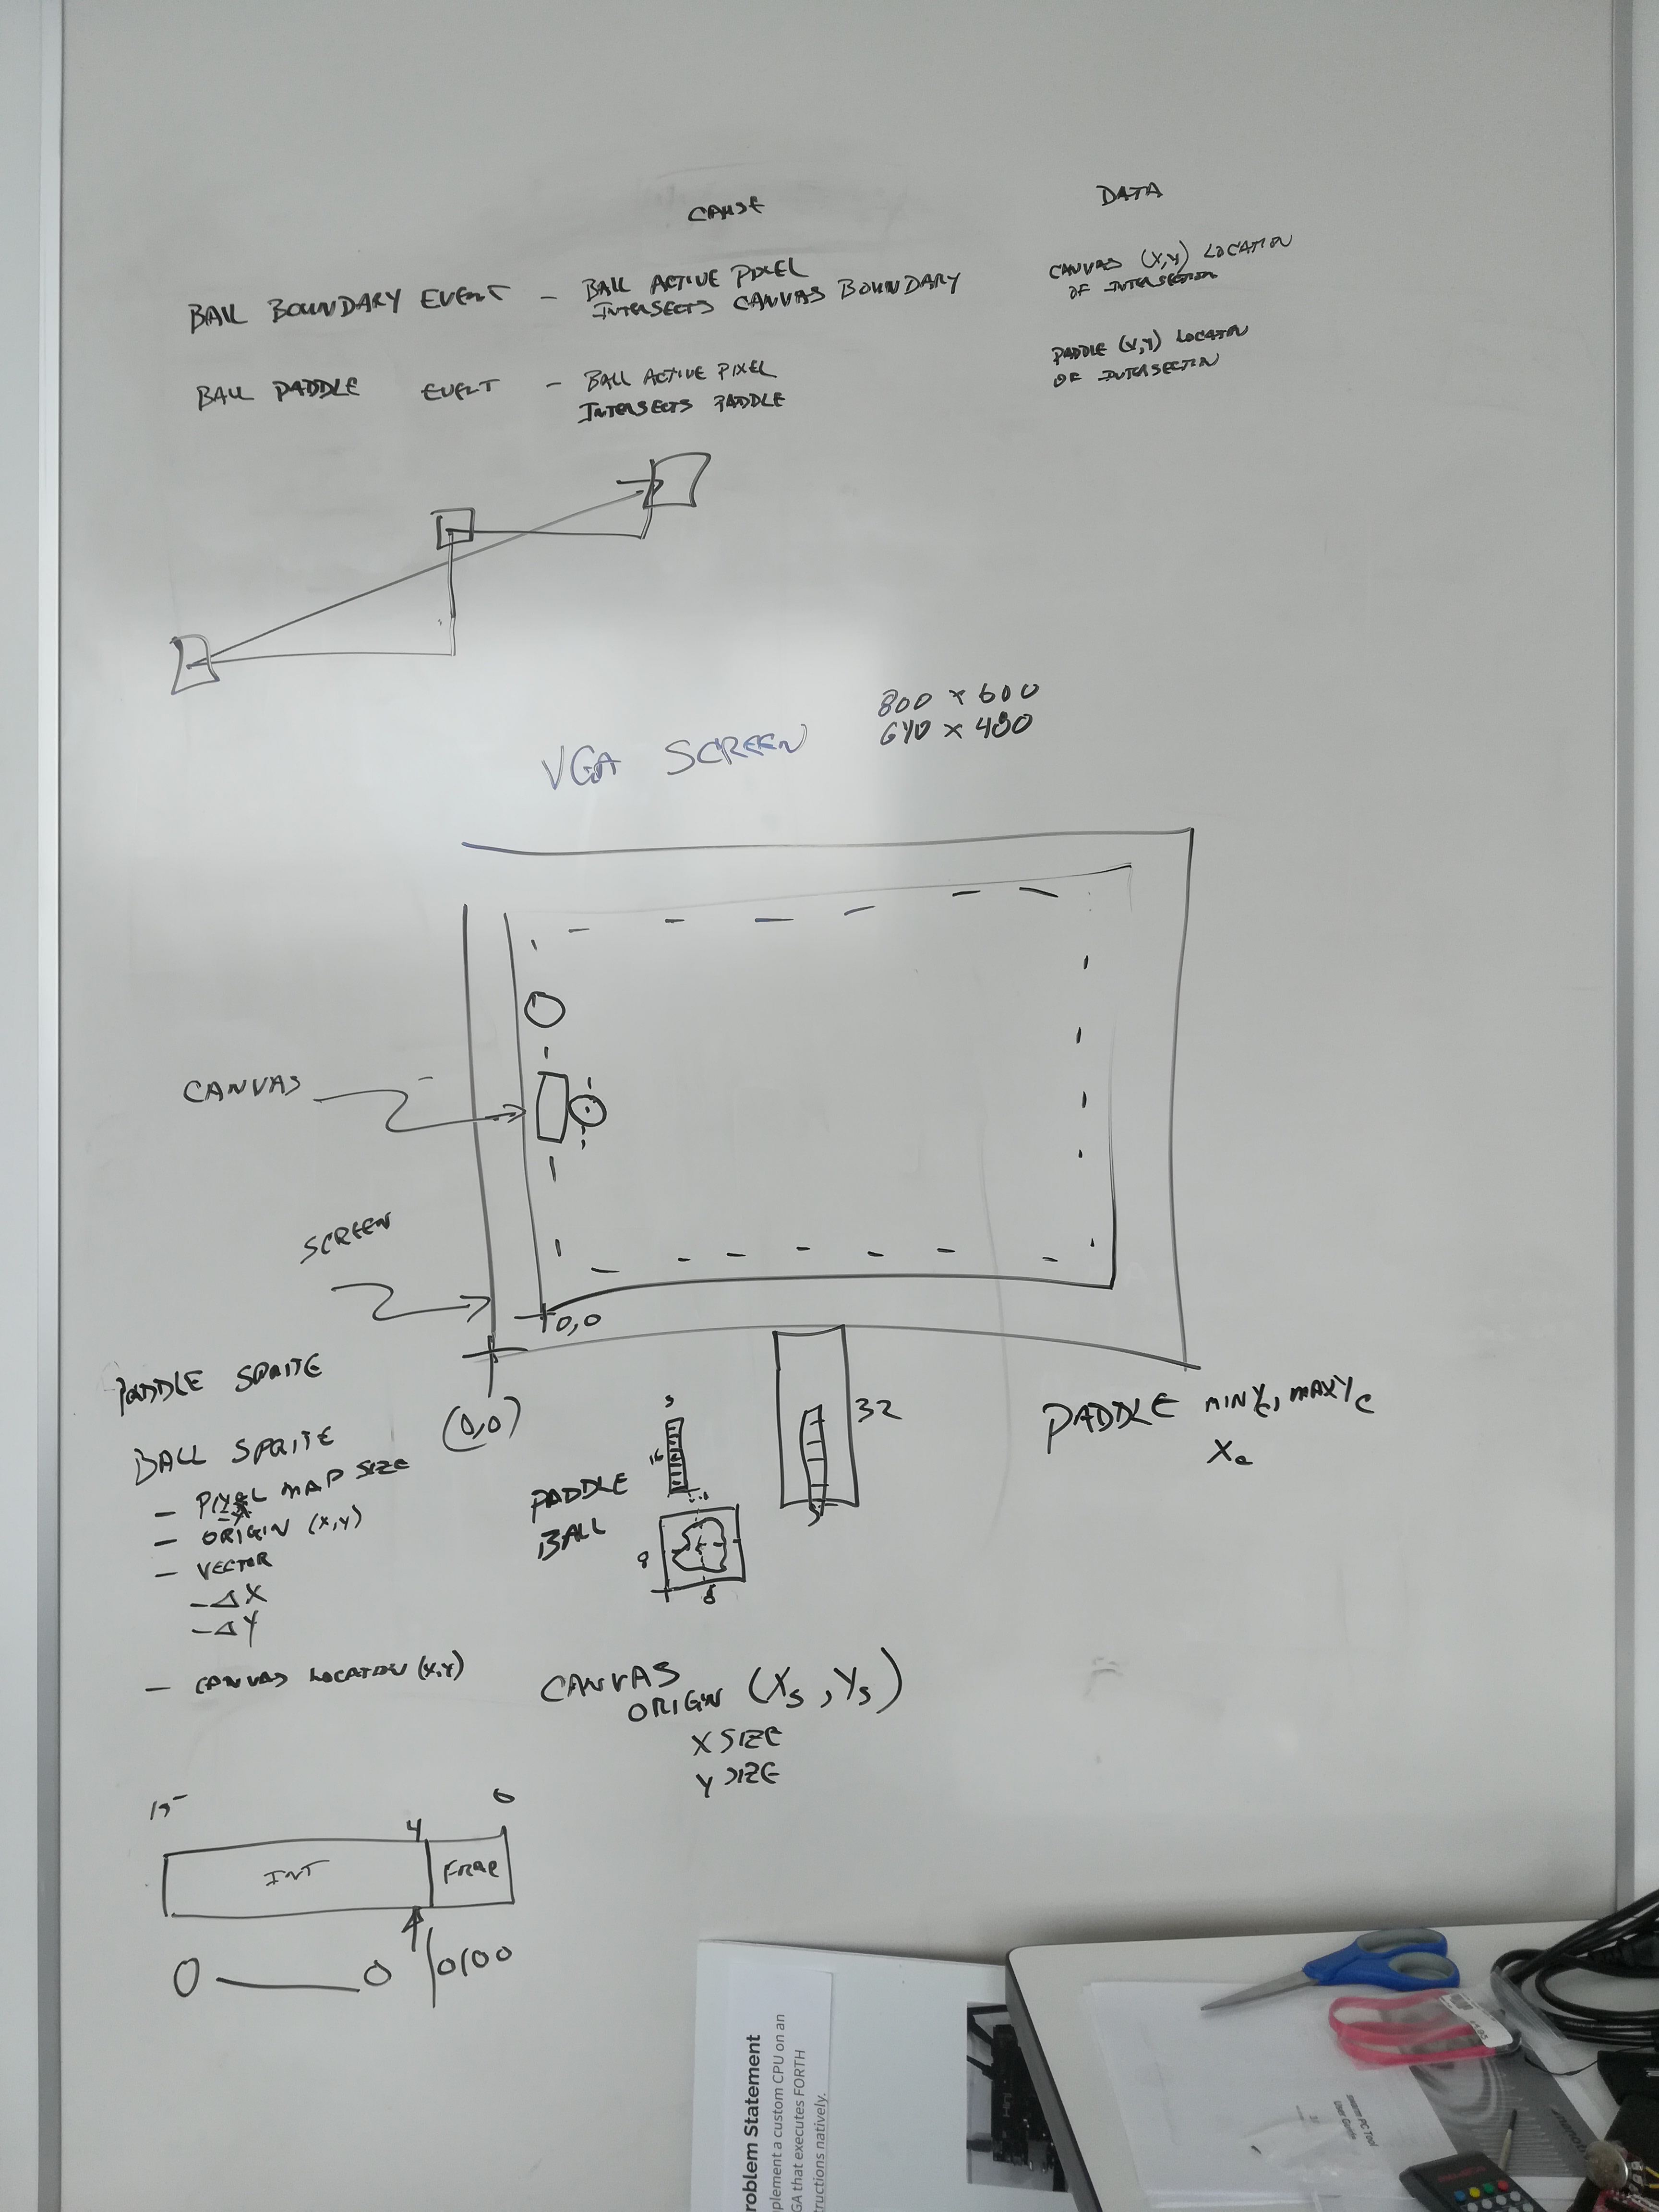 CAUSE
DATA
BALL BOUNDARY EVENT - BALL ACTIVE PIXEL
INTERSECTS CANVAS BOUNDARY
CANVAS (X,Y) LOCATION
OF INTERSECTION
BALL PADDLE EVENT - BALL ACTIVE PIXEL
INTERSECTS PADDLE
PADDLE (X,Y) LOCATION
OF INTERSECTION
VGA SCREEN
800 x 600
640 x 480
CANVAS
SCREEN
0,0
(0,0)
PADDLE SPRITE
BALL SPRITE
- PIXEL MAP SIZE
- ORIGIN (X,Y)
- VECTOR
- ΔX
- ΔY
- CANVAS LOCATION (X,Y)
16
PADDLE
BALL
8
8
32
PADDLE MINYc, MAXYc
Xc
CANVAS
ORIGIN (Xs, Ys)
X SIZE
Y SIZE
15
4
0
INT
FRAC
0 — 0 | 0100
roblem Statement
plement a custom CPU on an
GA that executes FORTH
tructions natively.